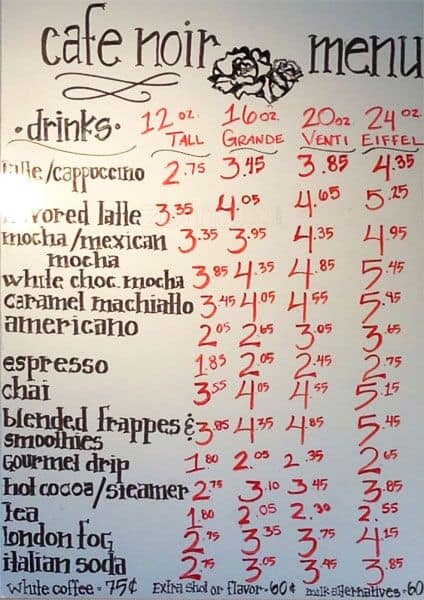 cafe noir menu
·drinks· 12 oz. 16 oz. 20 oz. 24 oz
TALL GRANDE VENTI EIFFEL
latte/cappuccino 2.75 3.45 3.85 4.35
flavored latte 3.35 4.05 4.65 5.25
mocha/mexican 3.35 3.95 4.35 4.95
mocha
white choc. mocha 3.85 4.35 4.85 5.45
caramel machiatto 3.45 4.05 4.55 5.95
americano 2.05 2.65 3.05 3.65
espresso 1.85 2.05 2.45 2.75
chai 3.55 4.05 4.55 5.15
blended frappes & 3.85 4.35 4.85 5.45
smoothies
gourmet drip 1.80 2.05 2.35 2.65
hot cocoa/steamer 2.75 3.10 3.45 3.85
tea 1.80 2.05 2.30 2.55
london fog 2.75 3.35 3.75 4.15
italian soda 2.75 3.05 3.45 3.85
white coffee = 75¢ Extra shot or flavor = 60¢ milk alternatives = 60